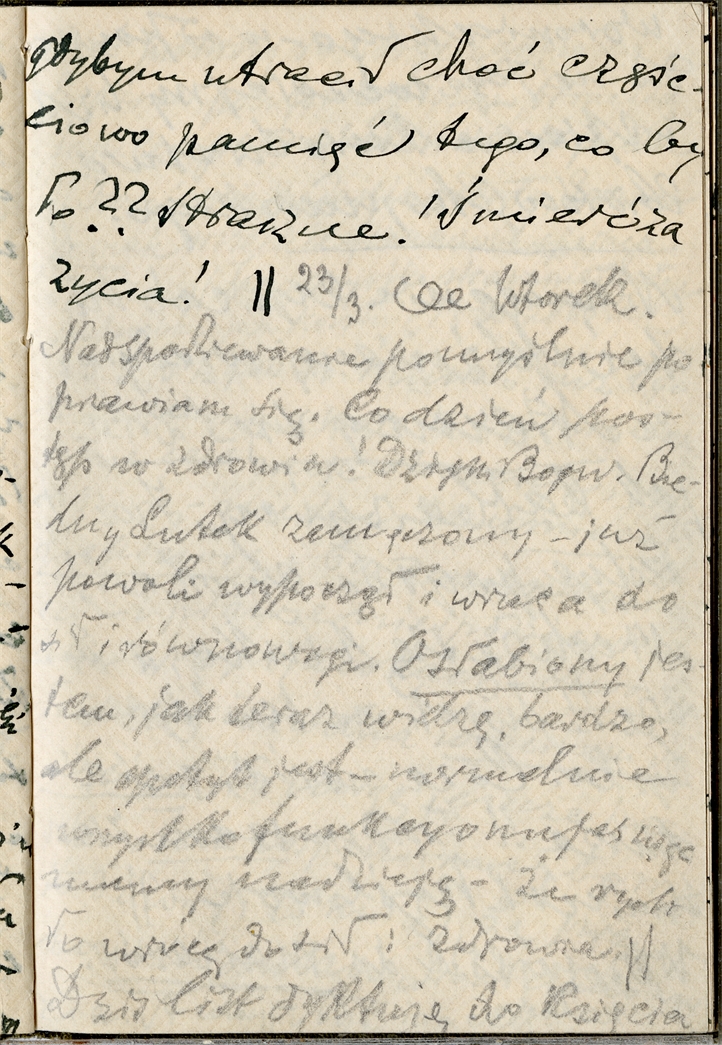 gdybym utracił choć częśc-
ciowo pamięć tego, co by
ło?? Straszne! Śmierć za
życia! || 23/3. Wtorek.
Nadspodziewanie pomyślnie po-
prawiam się. Co dzień pos-
tęp w zdrowiu! Dzięki Bogu. Bie-
dny Lutek zamęczony – już
powoli wypoczął i wraca do
sił i równowagi. Osłabiony jes-
tem, jak teraz widzę, bardzo,
ale apetyt jest – normalnie
wszystko funkcyonuje więc
mamy nadzieję – że rych
ło wrócę do sił i zdrowia ||
Dziś list dyktuję do Księcia